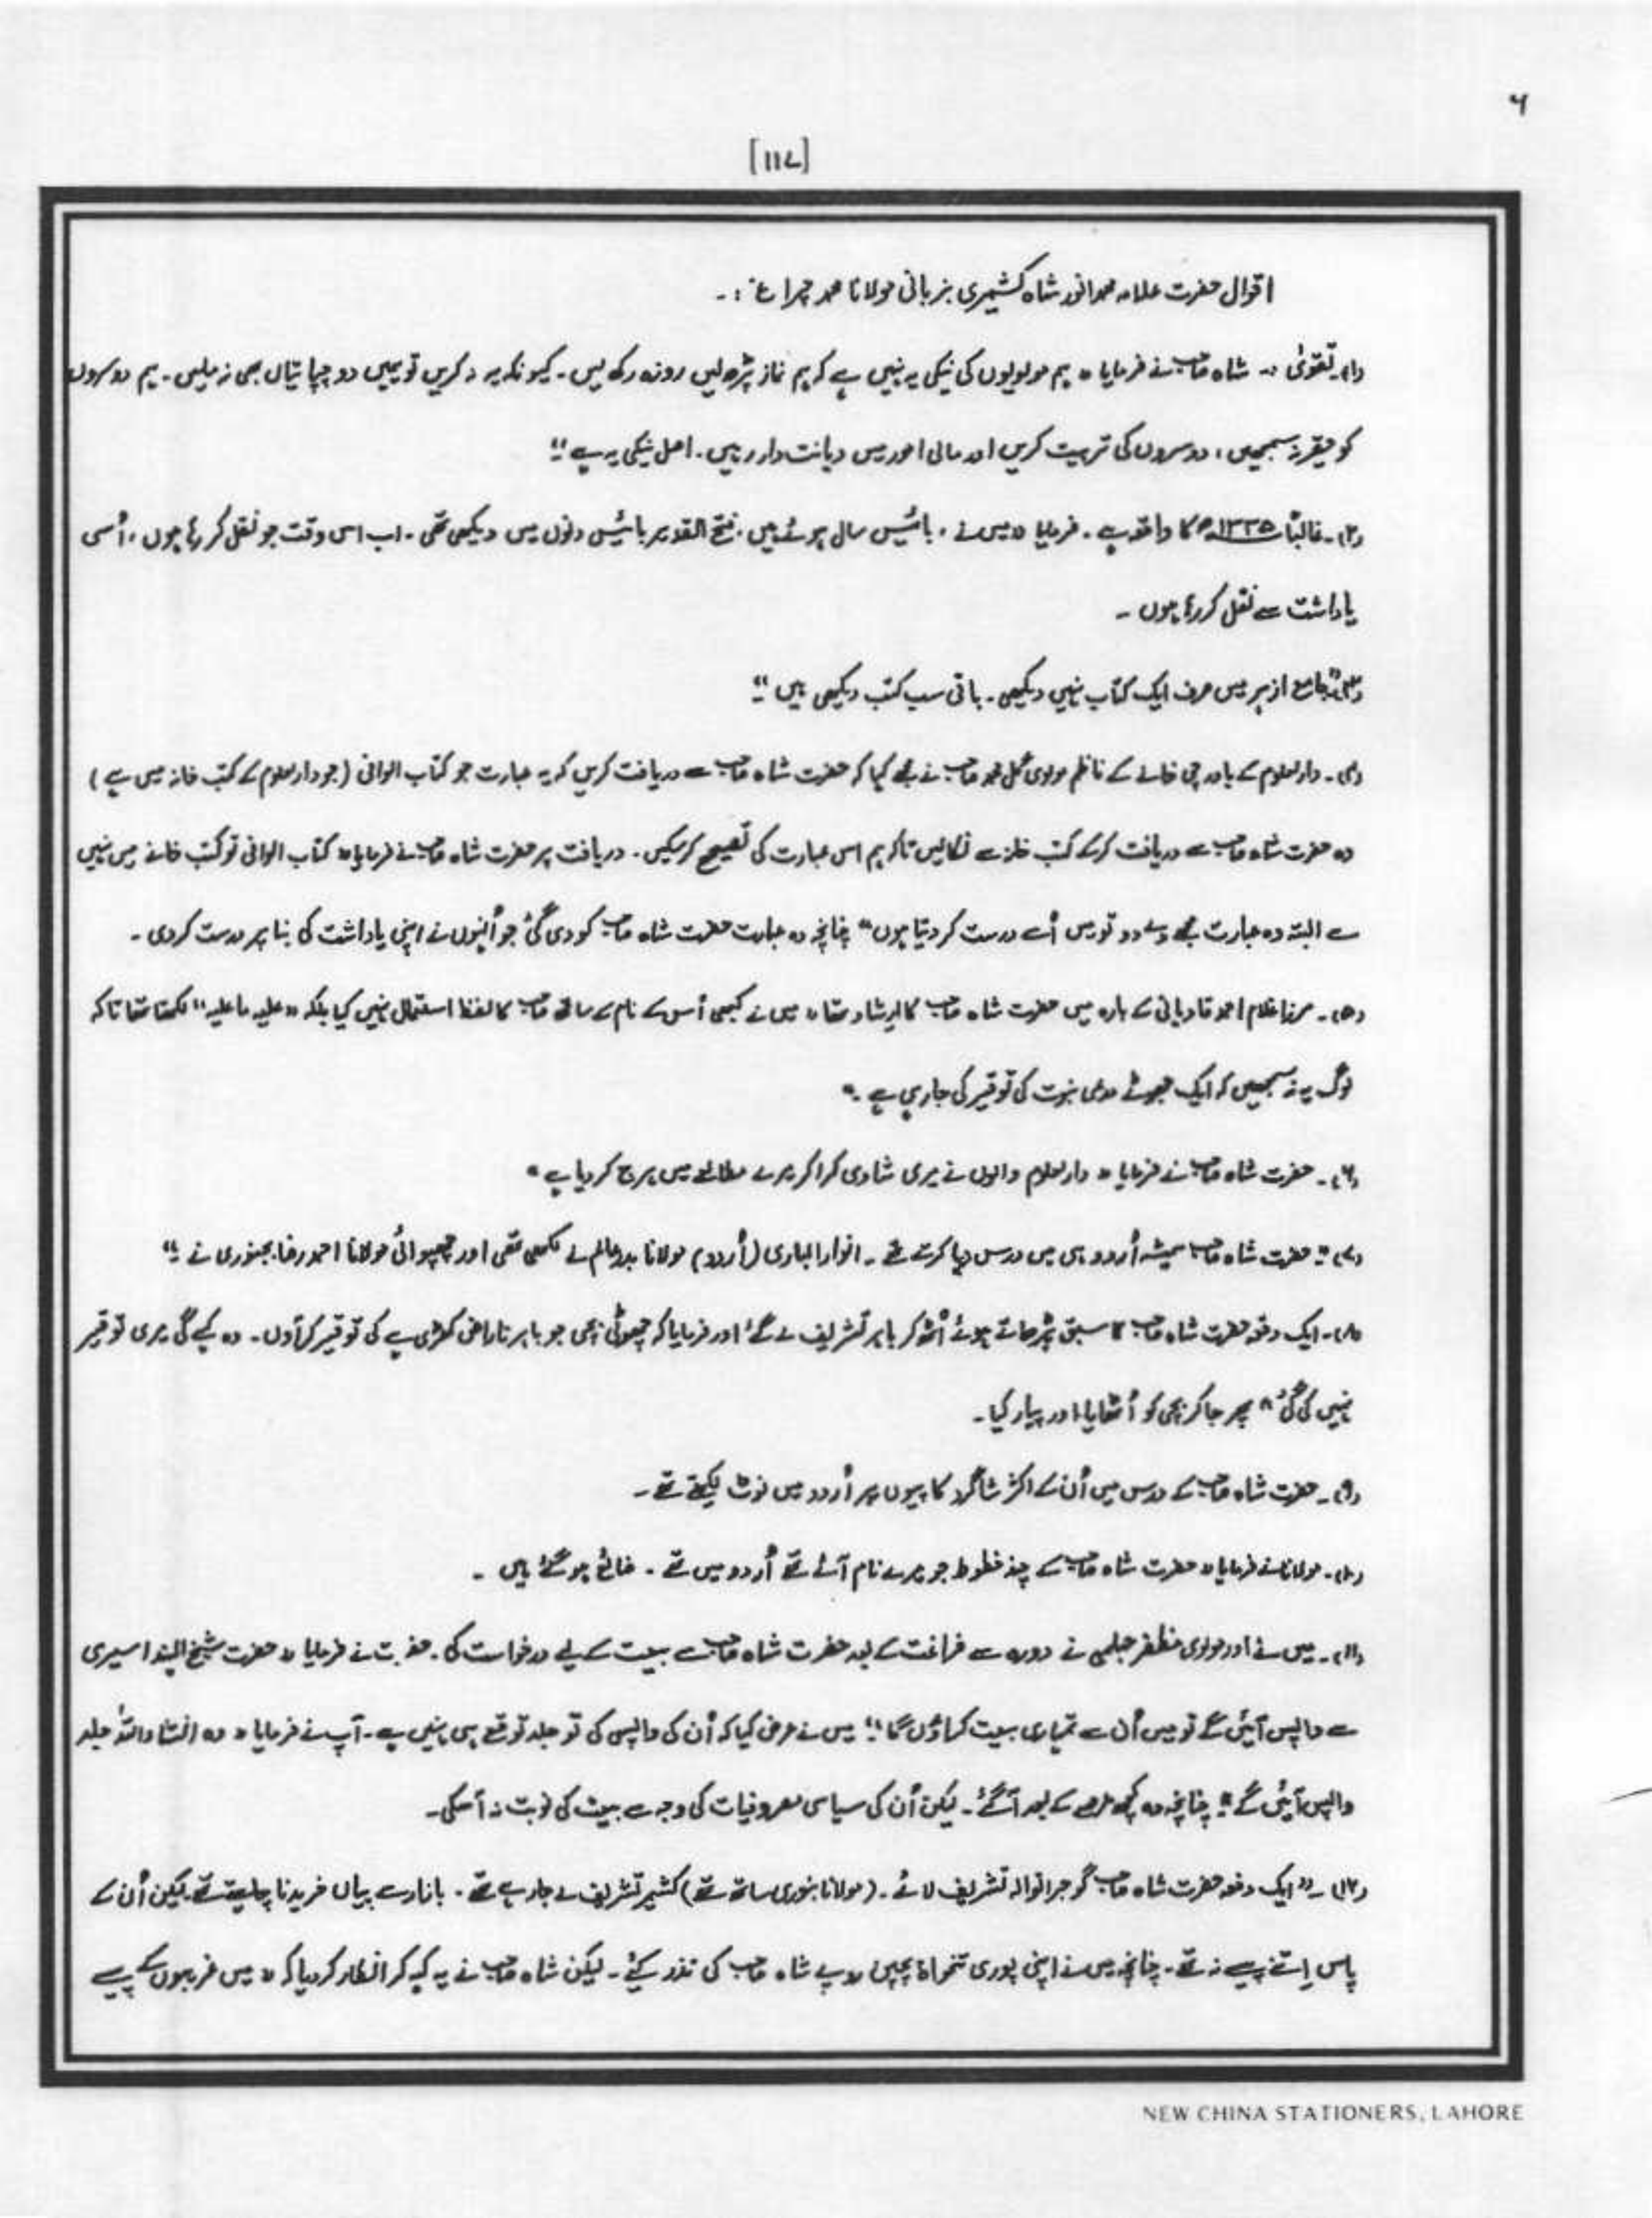 ۶
[۱۱۷]
اقوال حضرت علامہ محمد انور شاہ کشمیری بزبانی مولانا محمد چراغ :۔
(۱)۔ تقویٰ :۔ شاہ صاحب نے فرمایا " ہم مولویوں کی نیکی یہ نہیں ہے کہ ہم نماز پڑھ لیں روزہ رکھ لیں۔ کیونکہ یہ نہ کریں تو ہمیں دو چپاتیاں بھی نہ ملیں۔ ہم دوسروں
کو حقیر نہ سمجھیں، دوسروں کی تربیت کریں اور مالی امور میں دیانت دار رہیں۔ اصل نیکی یہ ہے "
(۲)۔ غالباً ۱۳۳۵ھ کا واقعہ ہے۔ فرمایا " میں نے، بائیس سال ہوئے ہیں، فتح القدیر بائیس دنوں میں دیکھی تھی۔ اب اس وقت جو نقل کر رہا ہوں، اُسی
یاداشت سے نقل کر رہا ہوں ۔
(۳) " جامع ازہر میں صرف ایک کتاب نہیں دیکھی۔ باقی سب کتب دیکھی ہیں "
(۴)۔ دارالعلوم کے باورچی خانے کے ناظم مولوی گل محمد صاحب نے مجھے کہا کہ حضرت شاہ صاحب سے دریافت کریں کہ یہ عبارت جو کتاب الوافی (جو دارالعلوم کے کتب خانہ میں ہے)
وہ حضرت شاہ صاحب سے دریافت کرکے کتب خانہ سے نکالیں تاکہ ہم اس عبارت کی تصحیح کرسکیں۔ دریافت پر حضرت شاہ صاحب نے فرمایا " کتاب الوافی تو کتب خانے میں نہیں
ہے البتہ وہ عبارت مجھے دے دو تو میں اُسے درست کر دیتا ہوں " چنانچہ وہ عبارت حضرت شاہ صاحب کو دی گئی جو اُنہوں نے اپنی یاداشت کی بنا پر درست کردی ۔
(۵)۔ مرزا غلام احمد قادیانی کے بارہ میں حضرت شاہ صاحب کا ارشاد تھا " میں نے کبھی اُس کے نام کے ساتھ صاحب کا لفظ استعمال نہیں کیا بلکہ " علیہ ما علیہ " لکھتا تھا تاکہ
لوگ یہ نہ سمجھیں کہ ایک جھوٹے مدعی نبوت کی توقیر کی جارہی ہے ۔"
(۶)۔ حضرت شاہ صاحب نے فرمایا " دارالعلوم والوں نے میری شادی کرا کر میرے مطالعے میں ہرج کر دیا ہے "
(۷) " حضرت شاہ صاحب ہمیشہ اُردو ہی میں درس دیا کرتے تھے ۔ انوار الباری (اُردو) مولانا بدرعالم نے لکھی تھی اور چھپوائی مولانا احمد رضا بجنوری نے "
(۸)۔ ایک دفعہ حضرت شاہ صاحب کا سبق پڑھاتے ہوئے اُٹھ کر باہر تشریف لے گئے اور فرمایا کہ چھوٹی بچی جو باہر ناراض کھڑی ہے کی توقیر کر آوں۔ وہ کہے گی میری توقیر
نہیں کی گئی " پھر جا کر بچی کو اُٹھایا اور پیار کیا۔
(۹)۔ حضرت شاہ صاحب کے درس میں اُن کے اکثر شاگرد کاپیوں پر اُردو میں نوٹ لیکھتے تھے ۔
(۱۰)۔ مولانا نے فرمایا " حضرت شاہ صاحب کے چند خطوط جو میرے نام آئے تھے اُردو میں تھے ۔ ضائع ہو گئے ہیں ۔
(۱۱)۔ میں نے اور مولوی مظفر جہلمی نے دورہ سے فراغت کے بعد حضرت شاہ صاحب سے بیعت کے لیے درخواست کی۔ حضرت نے فرمایا " حضرت شیخ الہند اسیری
سے واپس آئیں گے تو میں اُن سے تمہاری بیعت کراؤں گا " میں نے عرض کیا کہ اُن کی واپسی کی تو جلد توقع ہی نہیں ہے۔ آپ نے فرمایا " وہ انشاء اللہ جلد
واپس آئیں گے " چنانچہ وہ کچھ عرصے کے بعد آگئے۔ لیکن اُن کی سیاسی مصروفیات کی وجہ سے بیعت کی نوبت نہ آسکی۔
(۱۲)۔ " ایک دفعہ حضرت شاہ صاحب گوجرانوالہ تشریف لائے ۔ (مولانا بنوری ساتھ تھے) کشمیر تشریف لے جارہے تھے ۔ بازار سے یہاں خریدنا چاہتے تھے لیکن اُن کے
پاس اِتنے پیسے نہ تھے۔ چنانچہ میں نے اپنی پوری تنخواہ پچپن روپے شاہ صاحب کی نذر کیئے ۔ لیکن شاہ صاحب نے یہ کہہ کر انکار کر دیا کہ " میں غریبوں کے پیسے
NEW CHINA STATIONERS, LAHORE